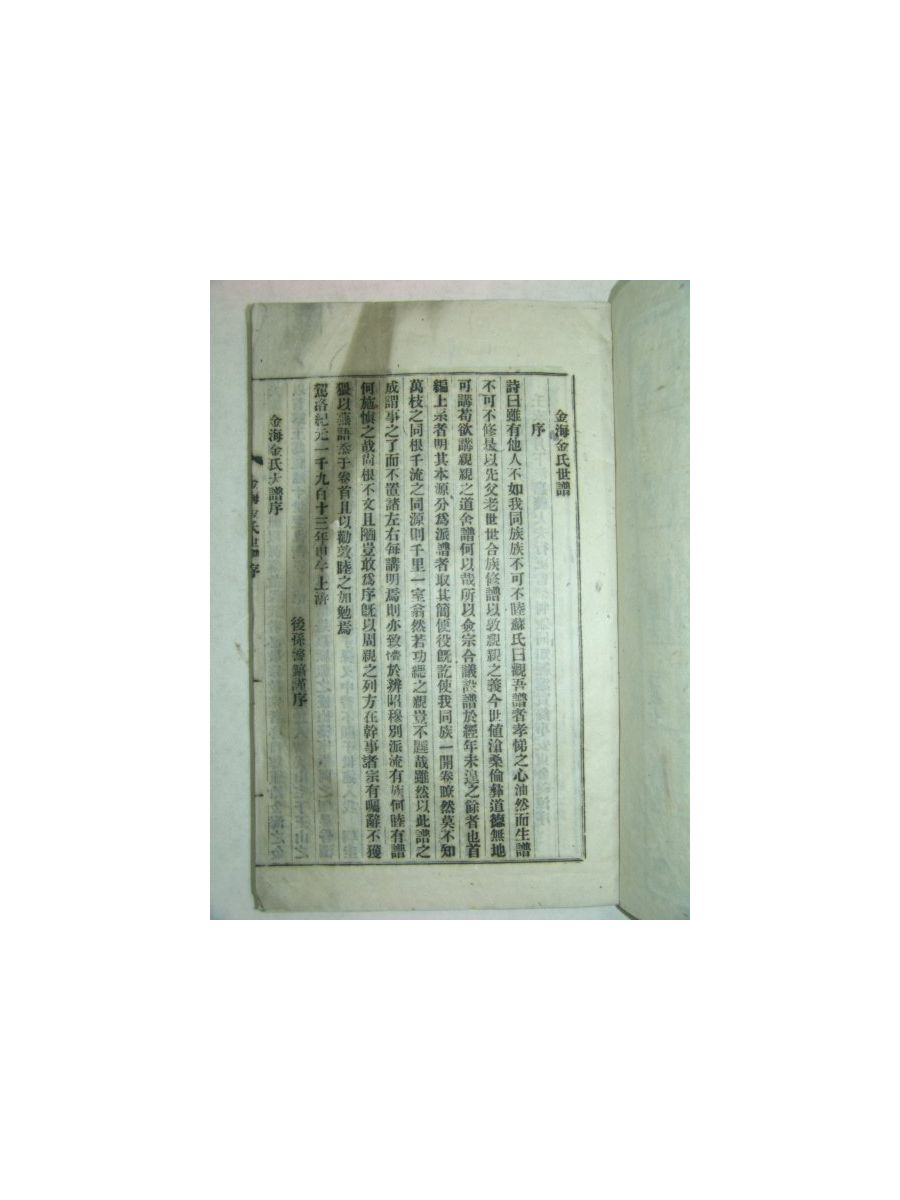 金海金氏世譜
序
詩曰雖有他人不如我同族族不可不睦蘇氏曰觀吾譜者孝悌之心油然而生譜
不可不修是以先父老世世合族修譜以敦親親之義今世値滄桑倫彝道德無地
可講苟欲講親親之道舍譜何以哉所以僉宗合議設譜於經年未遑之餘者也首
編上系者明其本源分爲派譜者取其簡便役旣訖使我同族一開卷瞭然莫不知
萬枝之同根千流之同源則千里一室翕然若功緦之親豈不韙哉雖然以此譜之
成謂事之了而不置諸左右每講明焉則亦致於辨昭穆別派流有族何睦有譜
何施愼之哉尙根不文且陋豈敢爲序旣以周親之列方在幹事諸宗有囑辭不獲
猥以蕪語忝于卷首且以勸敦睦之如勉焉
駕洛紀元一千九百十三年甲午上澣
後孫 謹序
金海金氏大譜序
金海金氏世譜 序